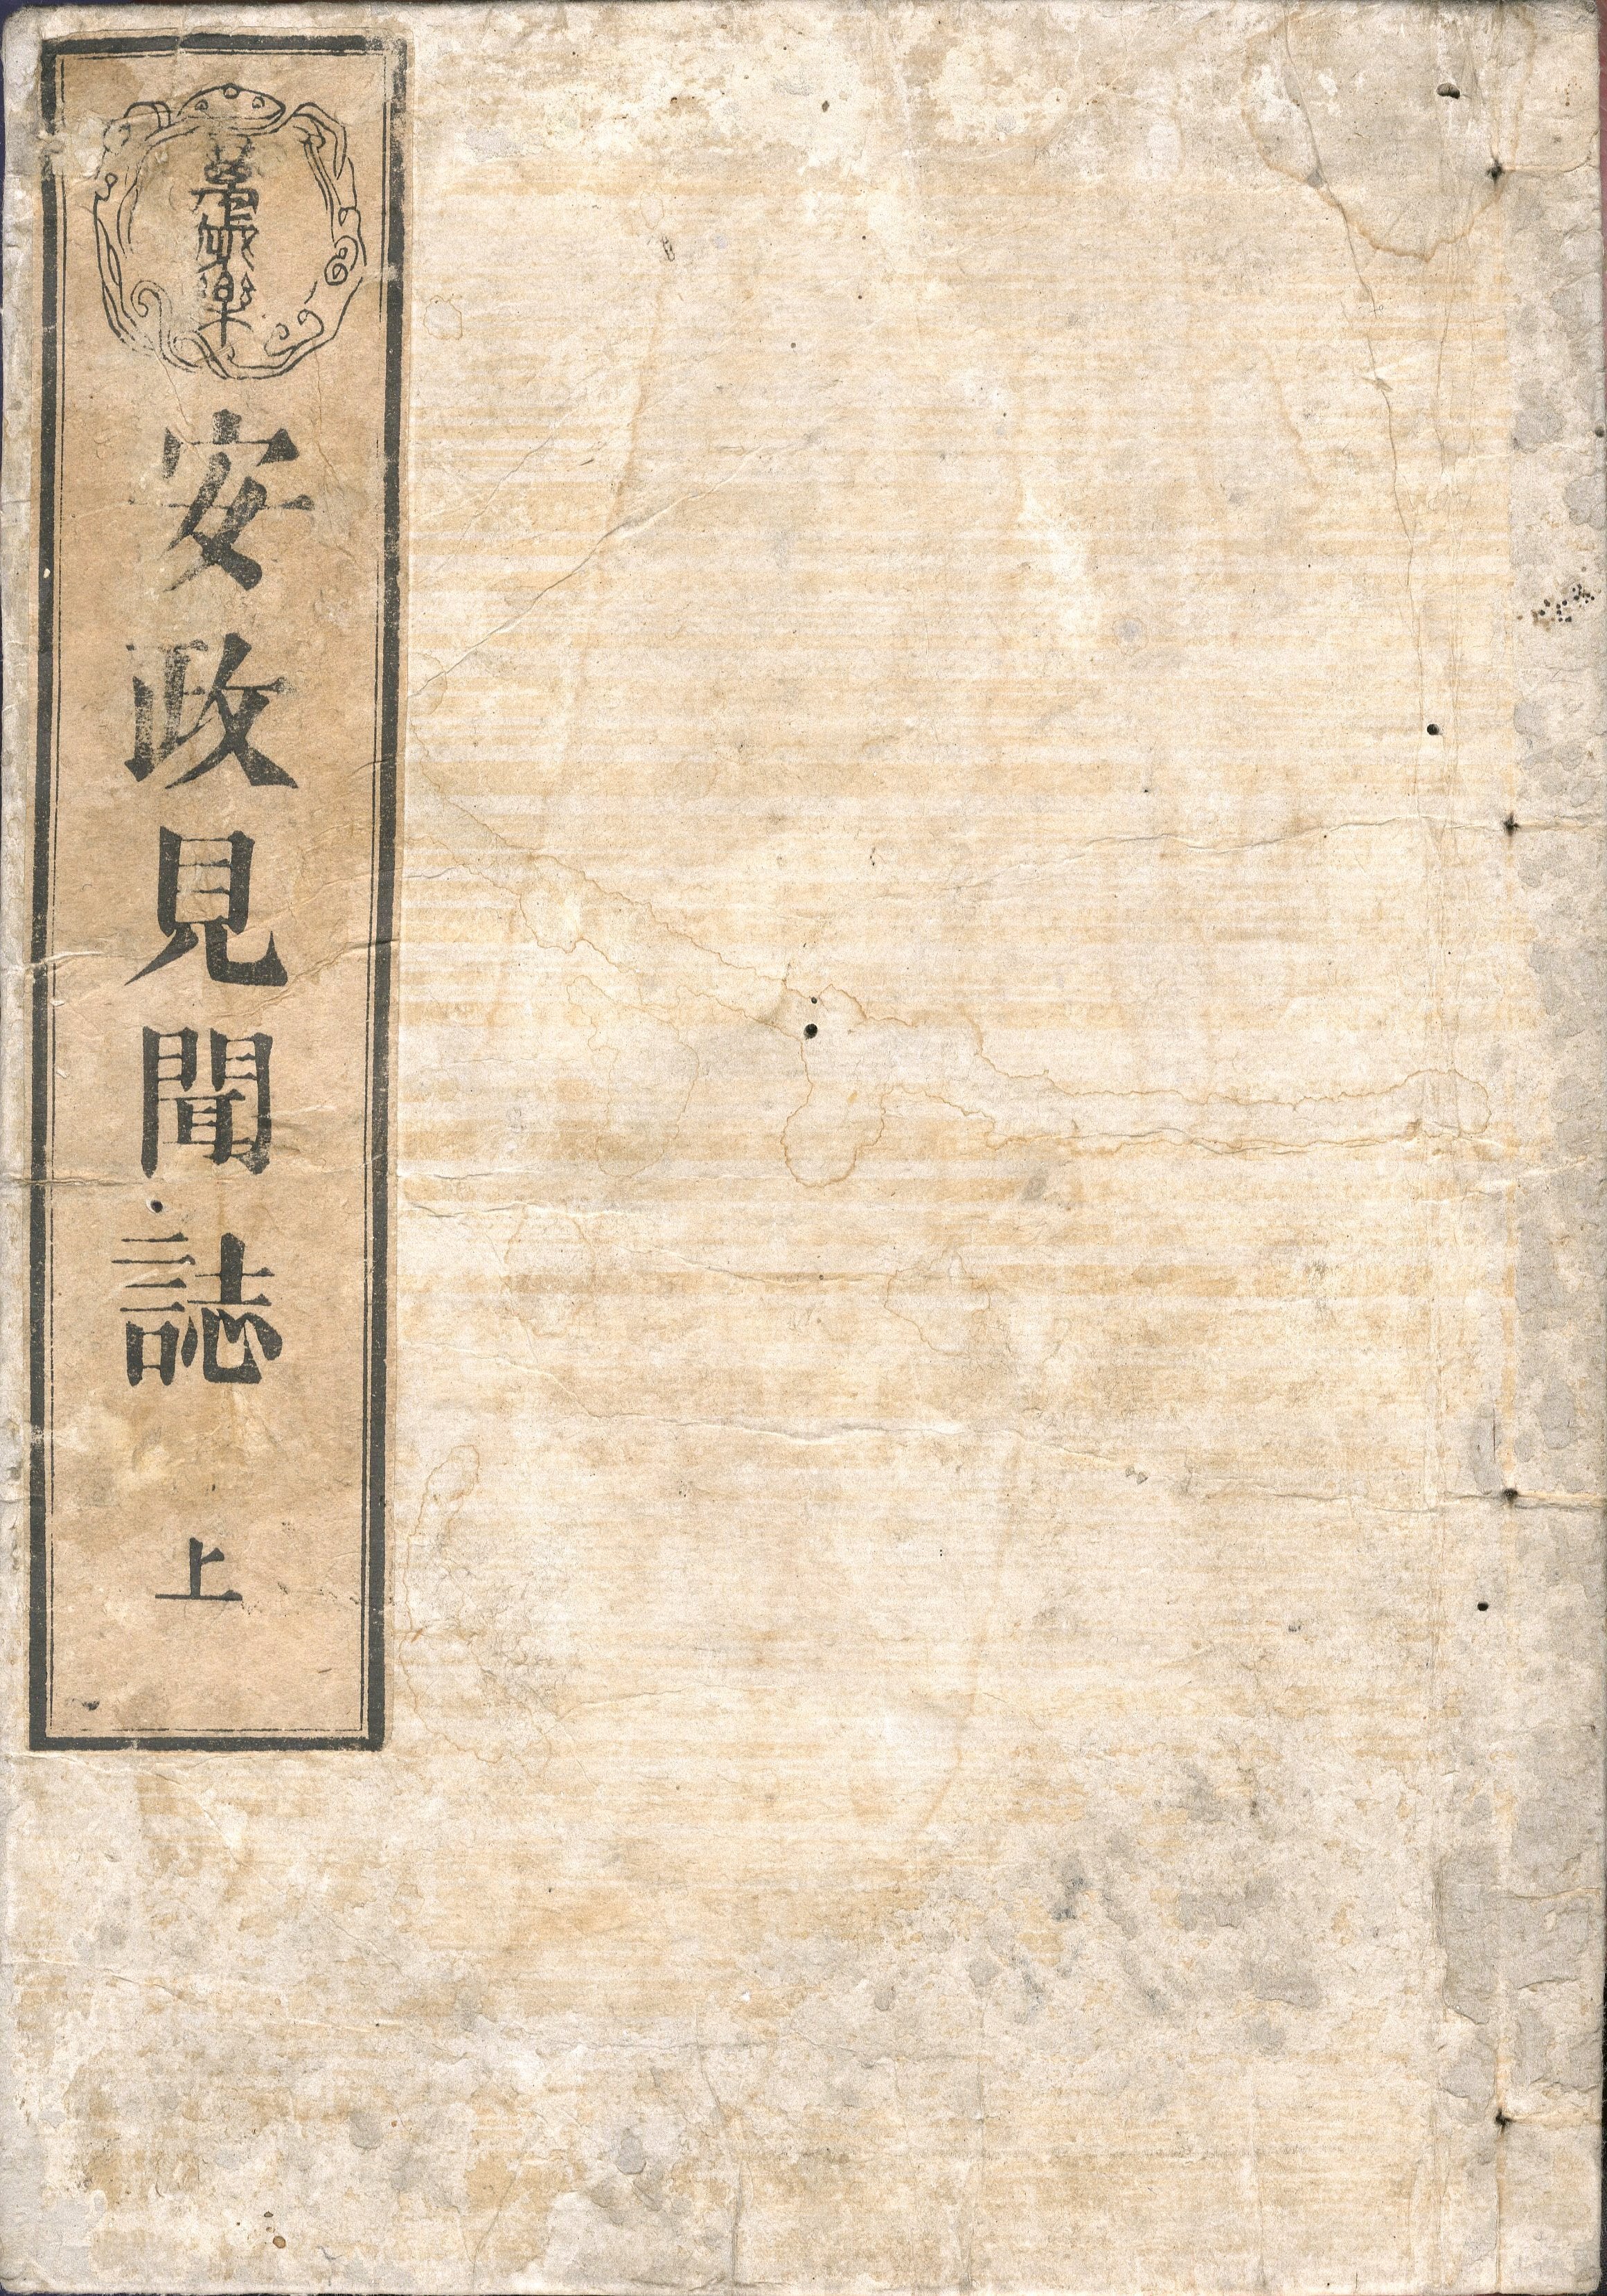 萬歳樂
安政見聞誌
上